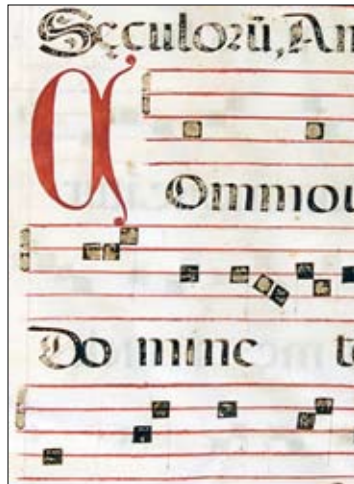 Sęculorū, Am
COmmou
Do mine te